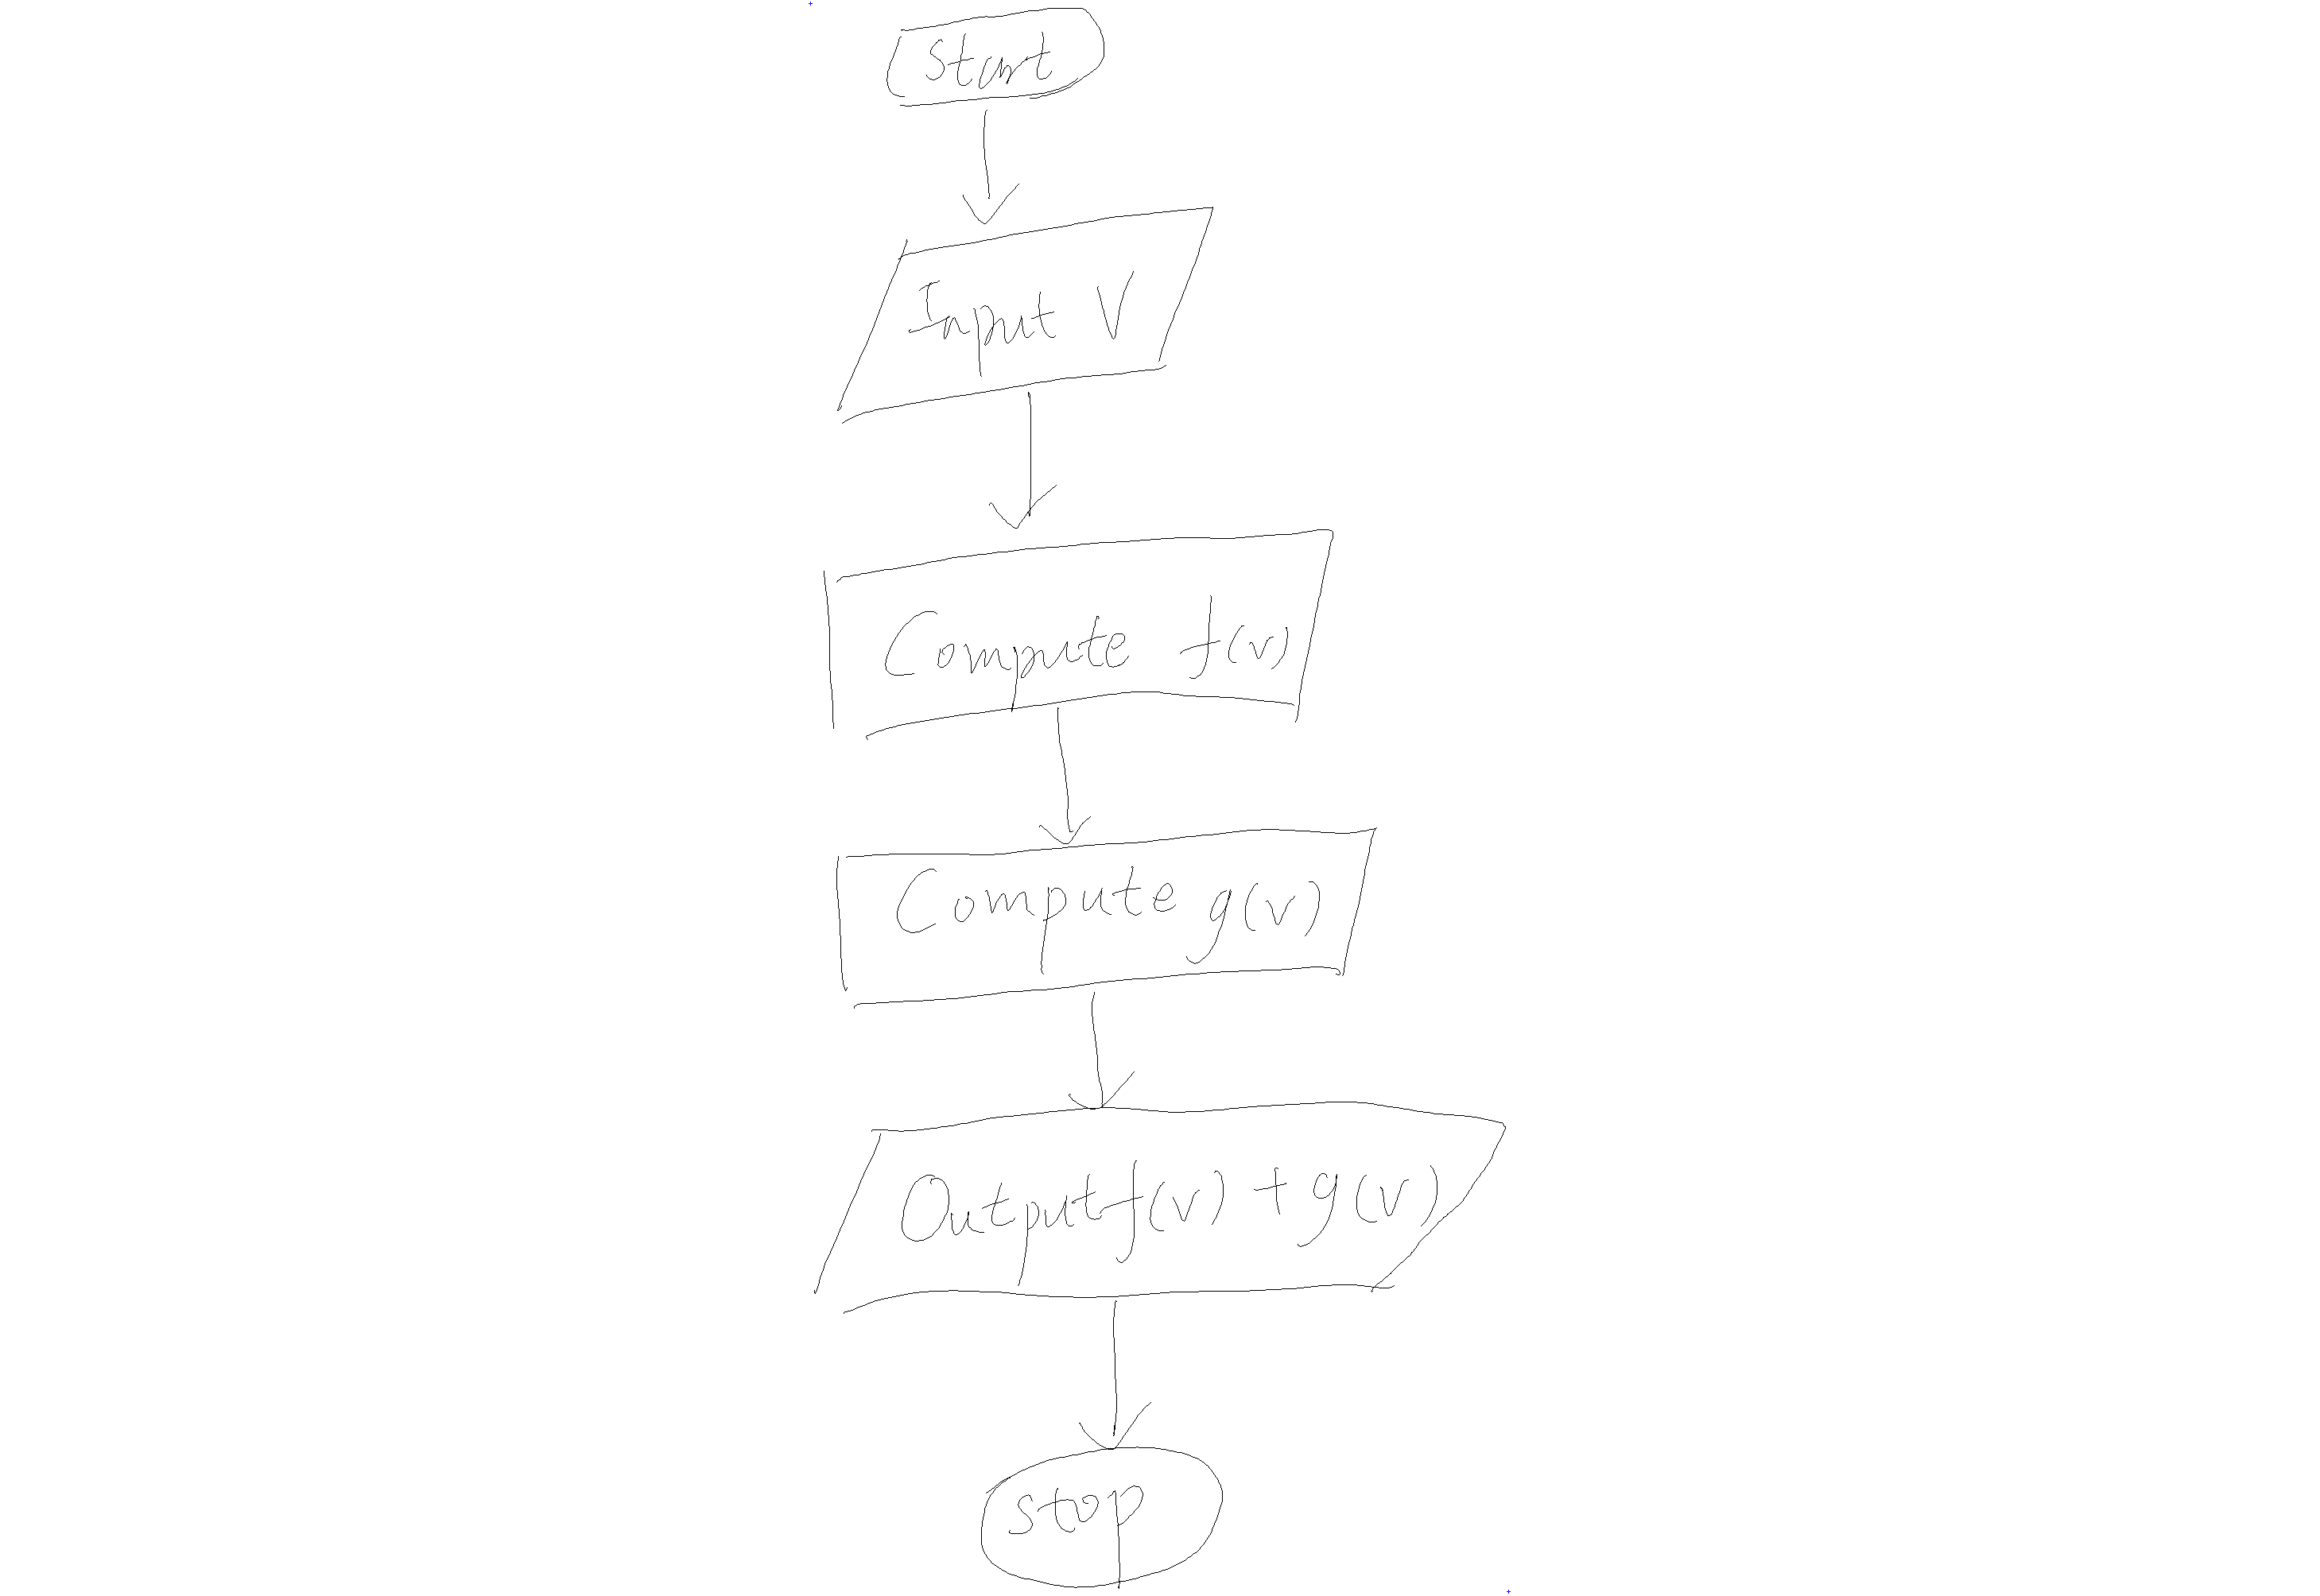 Start
Input V
Compute f(v)
Compute g(v)
Output f(v) + g(v)
stop